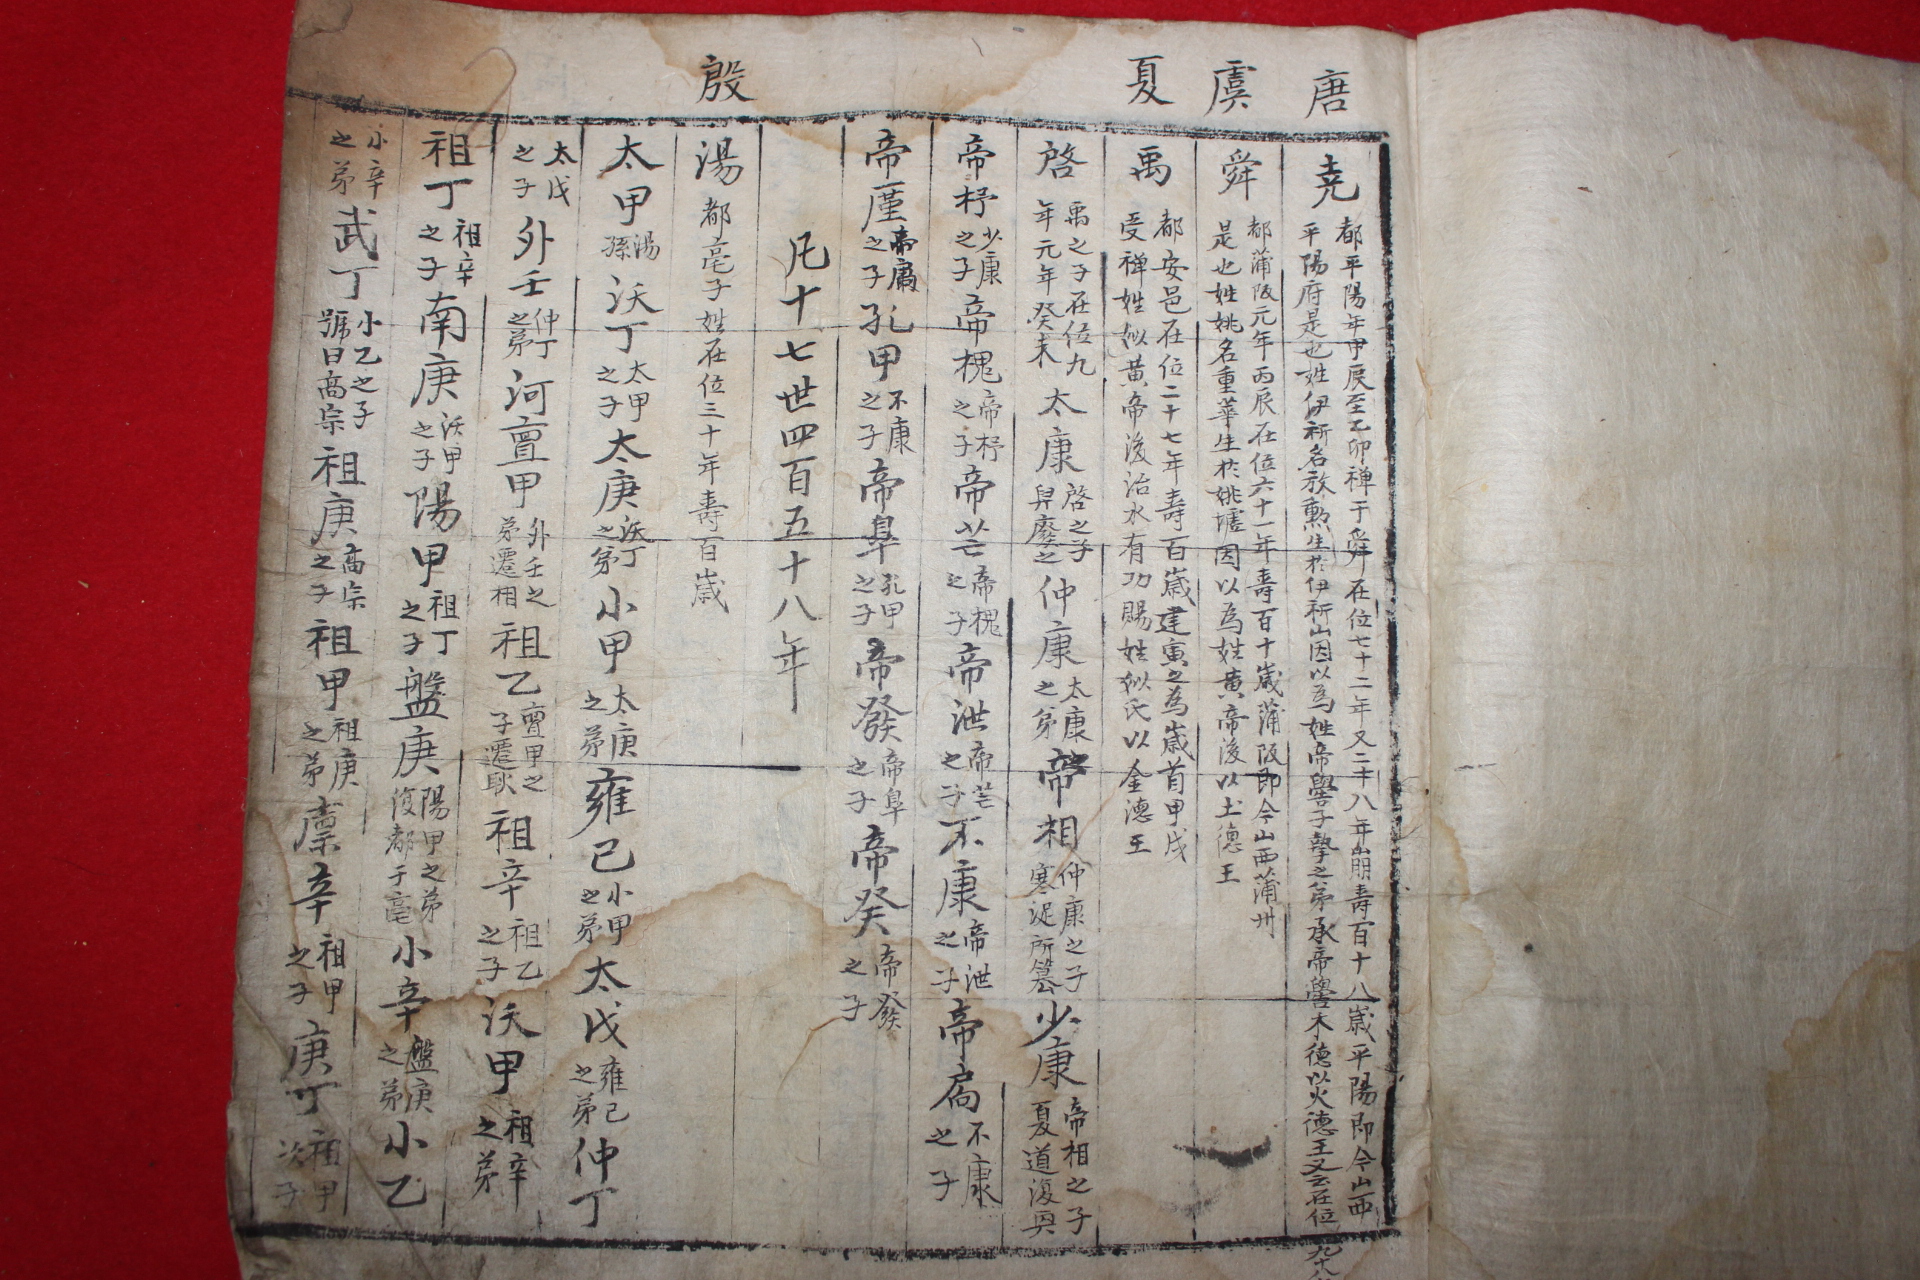 唐
堯
都平陽年甲辰至乙卯禅于舜在位七十二年又二十八年崩壽百十八歲平陽即今山西
平陽府是也姓伊祈名放勲生於伊祈山因以為姓帝嚳子摯之弟承帝嚳木德以火德王又云在位九十八
虞
舜
都蒲阪元年丙辰在位六十一年壽百十歲蒲阪即今山西蒲州
是也姓姚名重華生於姚墟因以為姓黃帝後以土德王
夏
禹
都安邑在位二十七年壽百歲建寅之為歲首甲戌
受禅姓姒黃帝後治水有功賜姓姒氏以金德王
啓 禹之子在位九年元年癸未 太康 啓之子羿廢之 仲康 太康之弟 帝相 仲康之子寒浞所簒 少康 帝相之子夏道復興
帝杼 少康之子 帝槐 帝杼之子 帝芒 帝槐之子 帝泄 帝芒之子 不康 帝泄之子 帝扃 不康之子
帝廑 帝扃之子 孔甲 不康之子 帝皐 孔甲之子 帝發 帝皐之子 帝癸 帝發之子
凡十七世四百五十八年
殷
湯 都亳子姓在位三十年壽百歲
太甲 湯孫 沃丁 太甲之子 太庚 沃丁之弟 小甲 太庚之弟 雍己 小甲之弟 太戊 雍己之弟 仲丁
太戊之子 外壬 仲丁之弟 河亶甲 外壬之弟遷相 祖乙 亶甲之子遷耿 祖辛 祖乙之子 沃甲 祖辛之弟
祖丁 祖辛之子 南庚 沃甲之子 陽甲 祖丁之子 盤庚 陽甲之弟復都于亳 小辛 盤庚之弟 小乙
小辛之弟 武丁 小乙之子號曰高宗 祖庚 高宗之子 祖甲 祖庚之弟 廩辛 祖甲之子 庚丁 祖甲次子